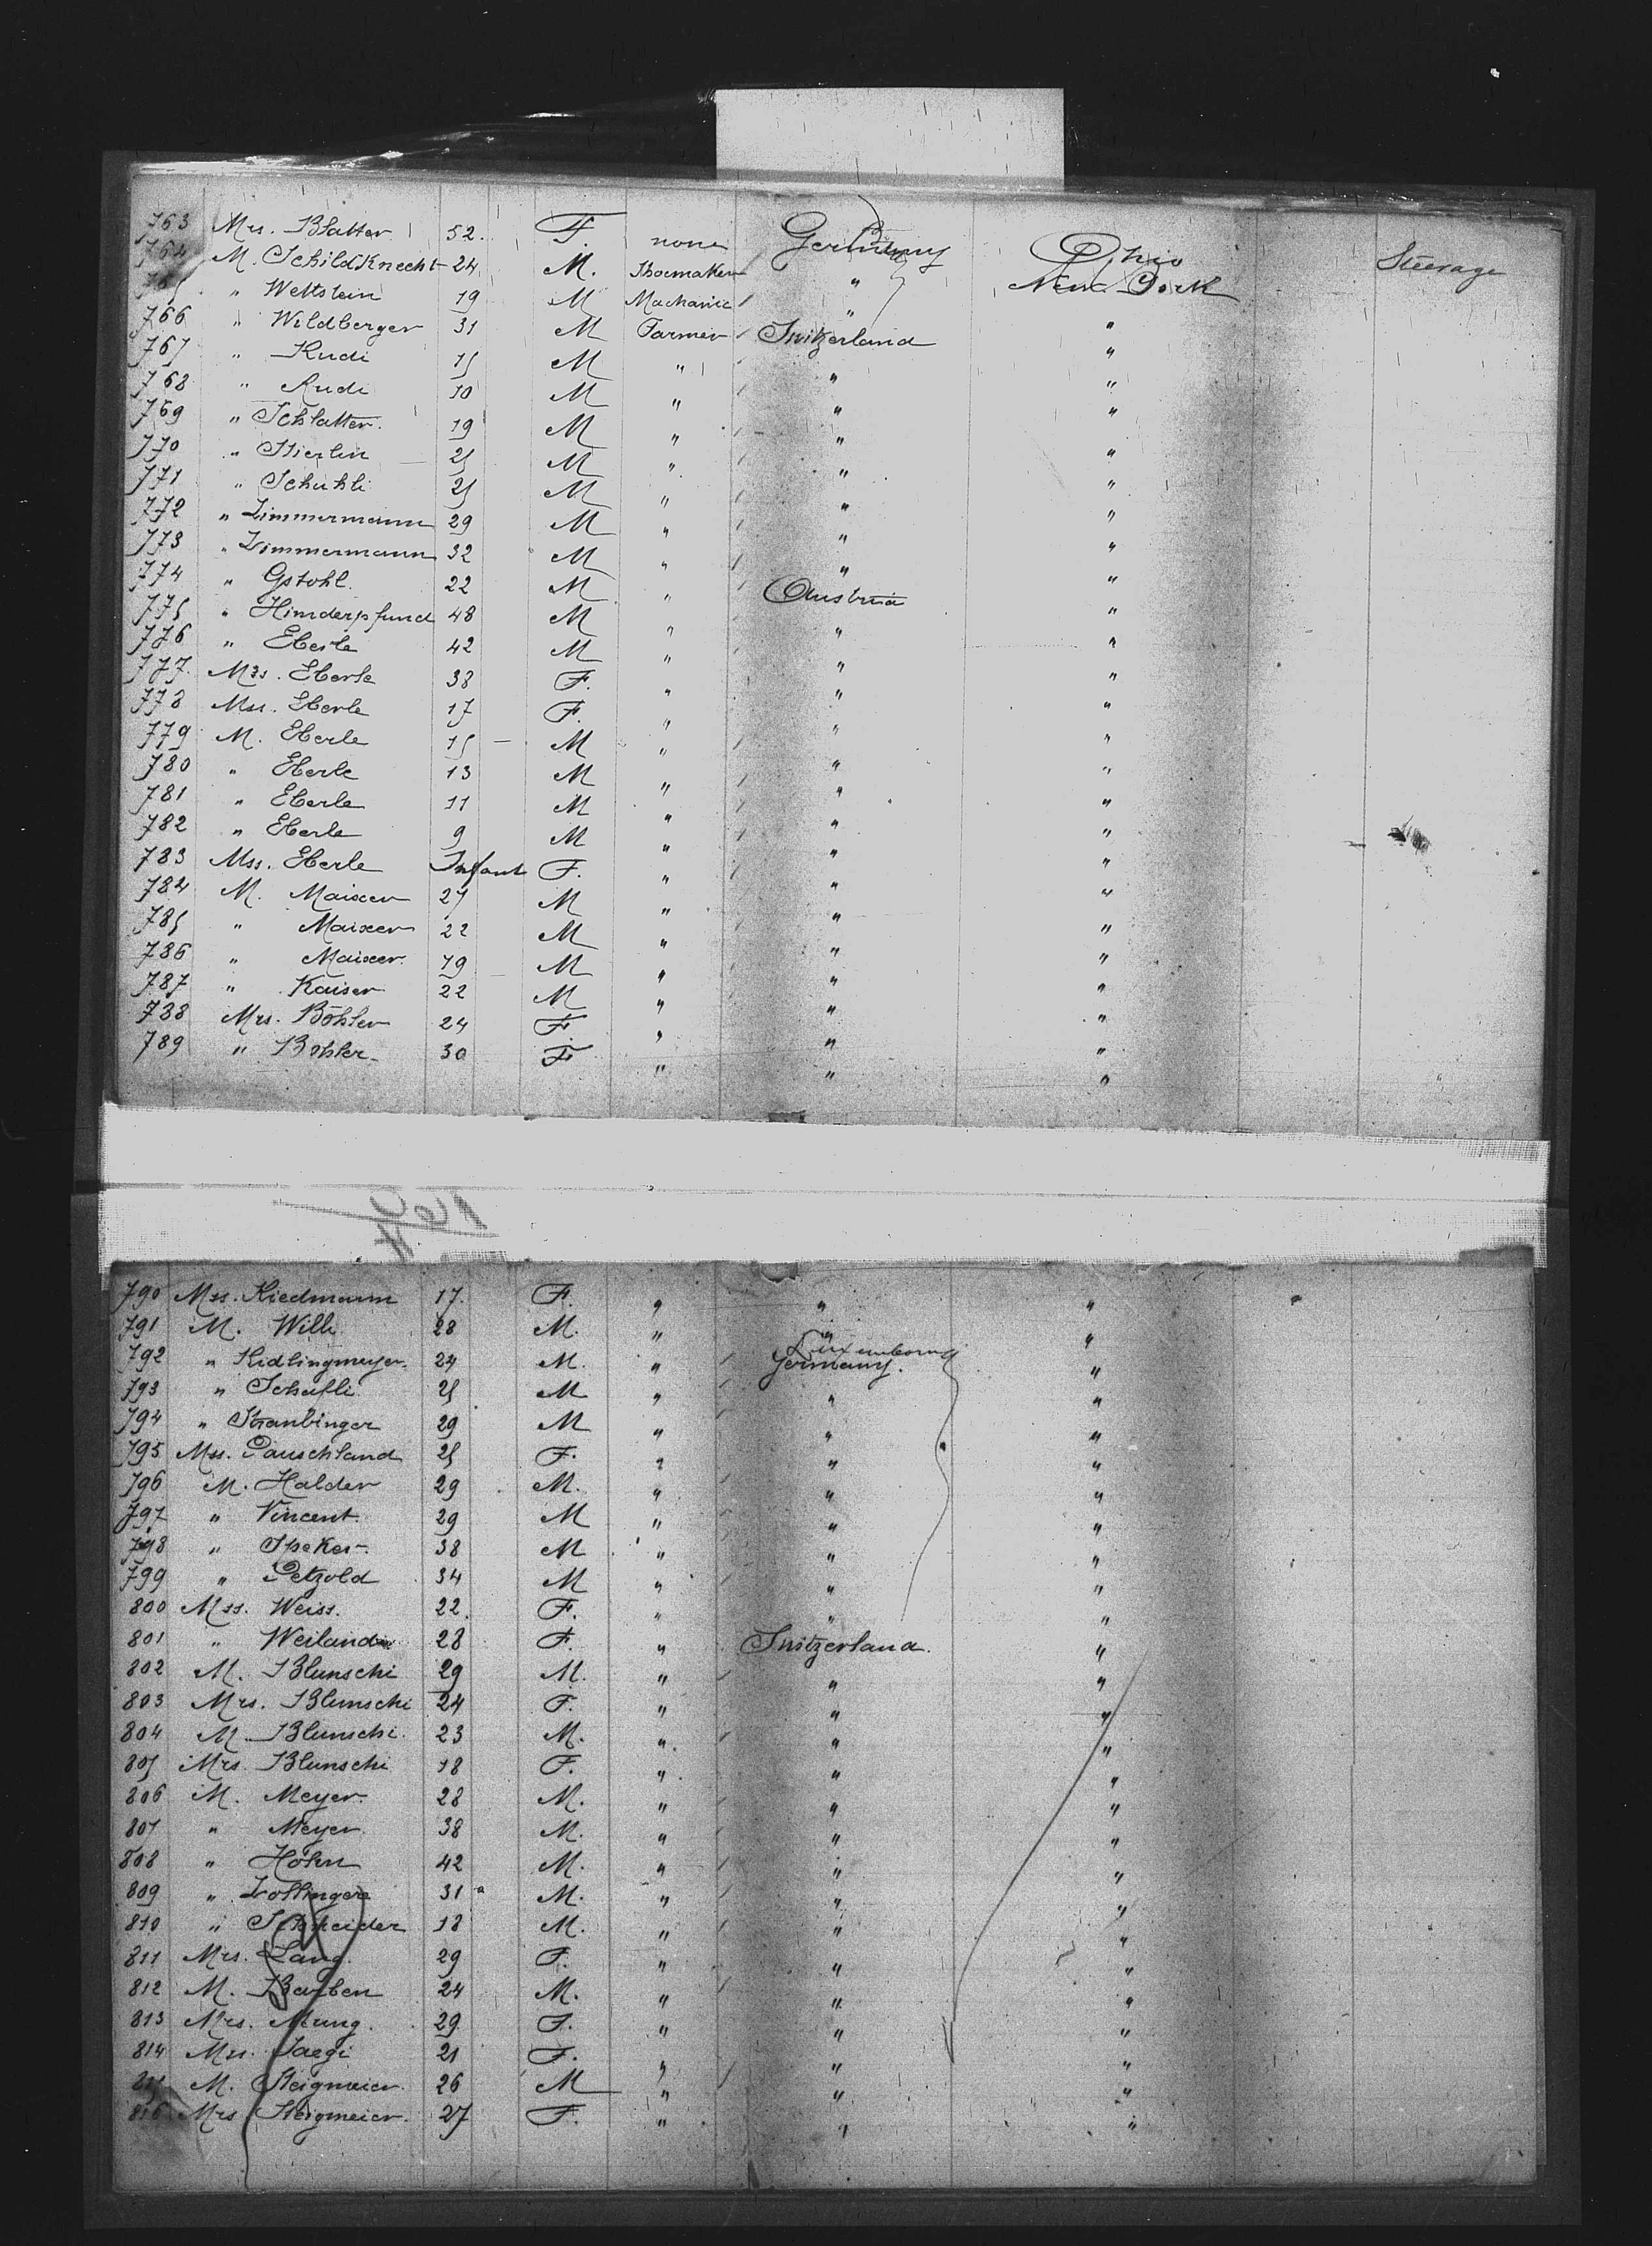 763 Mrs. Blatter 52. F. none Germany Ohio Steerage
764 M. Schildknecht 24 M. Shoemaker " New York
" Wettstein 19 M Machanic " "
766 " Wildberger 31 M Farmer Switzerland "
767 " Rudi 15 M " " "
768 " Rudi 10 M " " "
769 " Schlatter. 19 M " " "
770 " Stierlin 25 M " " "
771 " Schuhli 25 M " " "
772 " Zimmermann 29 M " " "
773 " Zimmermann 32 M " " "
774 " Gstohl. 22 M " Austria "
775 " Himderpfund 48 M " " "
776 " Eberle 42 M " " "
777. Mrs. Eberle 38 F. " " "
778 Mss. Eberle 17 F. " " "
779 M. Eberle 15 M " " "
780 " Eberle 13 M " " "
781 " Eberle 11 M " " "
782 " Eberle 9 M " " "
783 Mss. Eberle Infant F. " " "
784 M. Maixer 27 M " " "
785 " Maixer 22 M " " "
786 " Maixer. 19 M " " "
787 " Kaiser 22 M " " "
788 Mrs. Böhler 24 F " " "
789 " Böhler 30 F " " "
790 Mss. Riedmann 17. F. " " "
791 M. Willi 28 M. " " "
792 " Ridlingmeyer. 24 M. " Luxembourg Germany. "
793 " Schufli 25 M " " "
794 " Straubinger 29 M " " "
795 Mss. Pauschland 25 F. " " "
796 M. Halder 29 M. " " "
797 " Vincent. 29 M " " "
798 " Speker. 38 M " " "
799 " Petzold 34 M " " "
800 Mss. Weiss. 22. F. " " "
801 " Weiland 28 F. " Switzerland. "
802 M. Blunschi 29 M. " " "
803 Mrs. Blunschi 24 F. " " "
804 M. Blunschi. 23 M. " " "
805 Mrs. Blunschi 18 F. " " "
806 M. Meyer. 28 M. " " "
807 " Meyer. 38 M. " " "
808 " Hohn 42 M. " " "
809 " Zollinger 31 M. " " "
810 " Schneider 18 M. " " "
811 Mrs. Lang. 29 F. " " "
812 M. Barben 24 M. " " "
813 Mrs. Mung. 29 F. " " "
814 Mss. Jaegi 21 F. " " "
815 M. Steigmeier. 26 M " " "
816 Mrs Steigmeier. 27 F. " " "